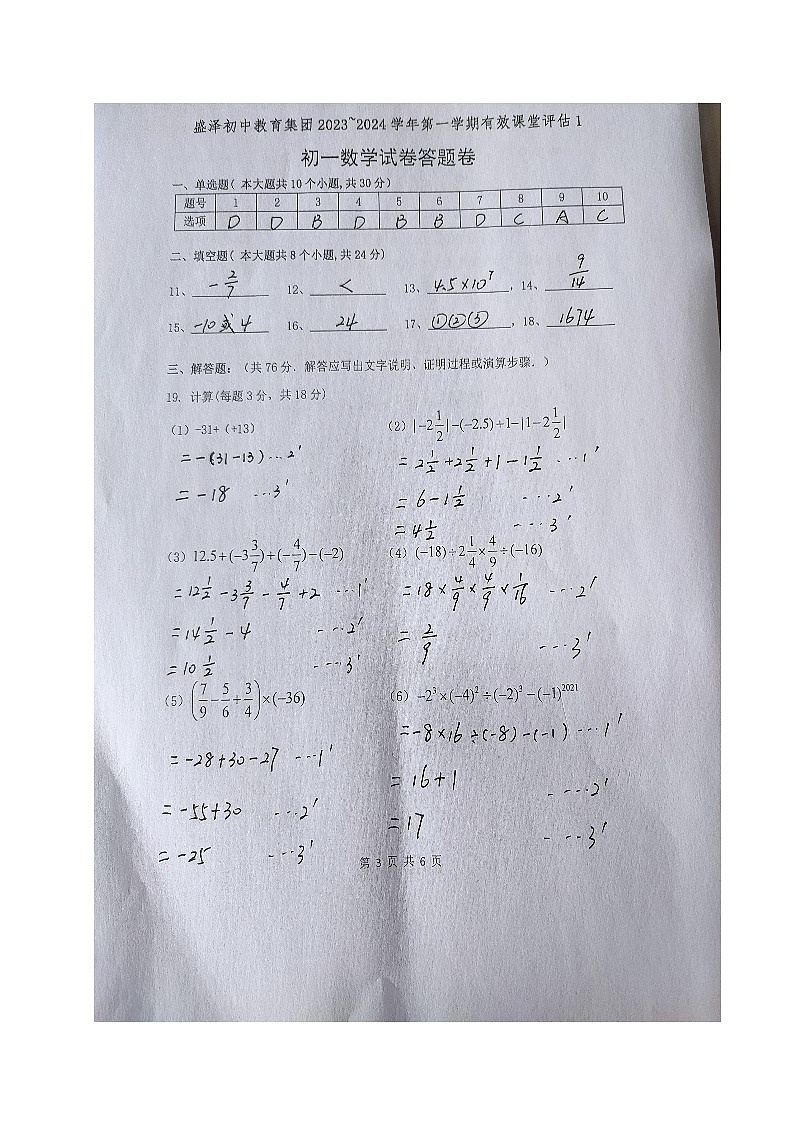 盛泽初中教育集团 2023~2024 学年第一学期有效课堂评估 1
初一数学试卷答题卷
一、单选题( 本大题共 10 个小题,共 30 分)
题号 1 2 3 4 5 6 7 8 9 10
选项 D D B D B B D C A C
二、填空题( 本大题共 8 个小题,共 24 分)
11、 -2/7 12、 < 13、 4.5×10⁷ ,14、 9/14
15、 -10或4 16、 24 17、 ①②③ ,18、 1674
三、解答题:(共 76 分.解答应写出文字说明、证明过程或演算步骤.)
19. 计算(每题 3 分,共 18 分)
(1)-31+(+13)
=-(31-13)…2'
=-18 …3'
(2)|-2 1/2|-(-2.5)+1-|1-2 1/2|
=2 1/2+2 1/2+1-1 1/2 …1'
=6-1 1/2 …2'
=4 1/2 …3'
(3)12.5+(-3 3/7)+(-4/7)-(-2)
=12 1/2-3 3/7-4/7+2 …1'
=14 1/2-4 …2'
=10 1/2 …3'
(4)(-18)÷2 1/4×4/9÷(-16)
=18×4/9×4/9×1/16 …2'
=2/9 …3'
(5)(7/9-5/6+3/4)×(-36)
=-28+30-27 …1'
=-55+30 …2'
=-25 …3'
(6)-2³×(-4)²÷(-2)³-(-1)²⁰²¹
=-8×16÷(-8)-(-1)…1'
=16+1 …2'
=17 …3'
第 3 页 共 6 页